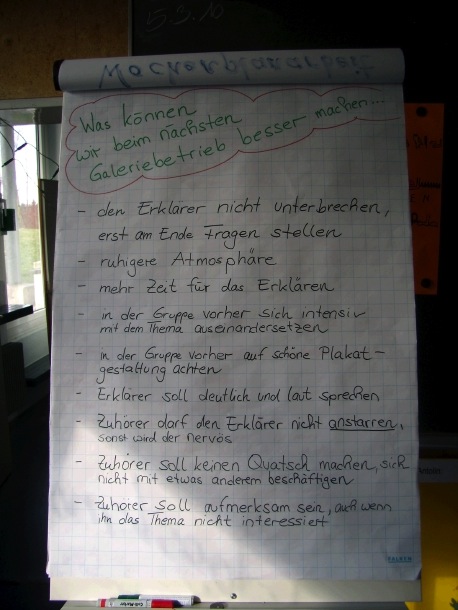 5.3.10
Wochenplanarbeit
Was können
wir beim nächsten
Galeriebetrieb besser machen...
- den Erklärer nicht unterbrechen,
erst am Ende Fragen stellen
- ruhigere Atmosphäre
- mehr Zeit für das Erklären
- in der Gruppe vorher sich intensiv
mit dem Thema auseinandersetzen
- in der Gruppe vorher auf schöne Plakat-
gestaltung achten
- Erklärer soll deutlich und laut sprechen
- Zuhörer darf den Erklärer nicht anstarren,
sonst wird der nervös
- Zuhörer soll keinen Quatsch machen, sich
nicht mit etwas anderem beschäftigen
- Zuhörer soll aufmerksam sein, auch wenn
ihn das Thema nicht interessiert